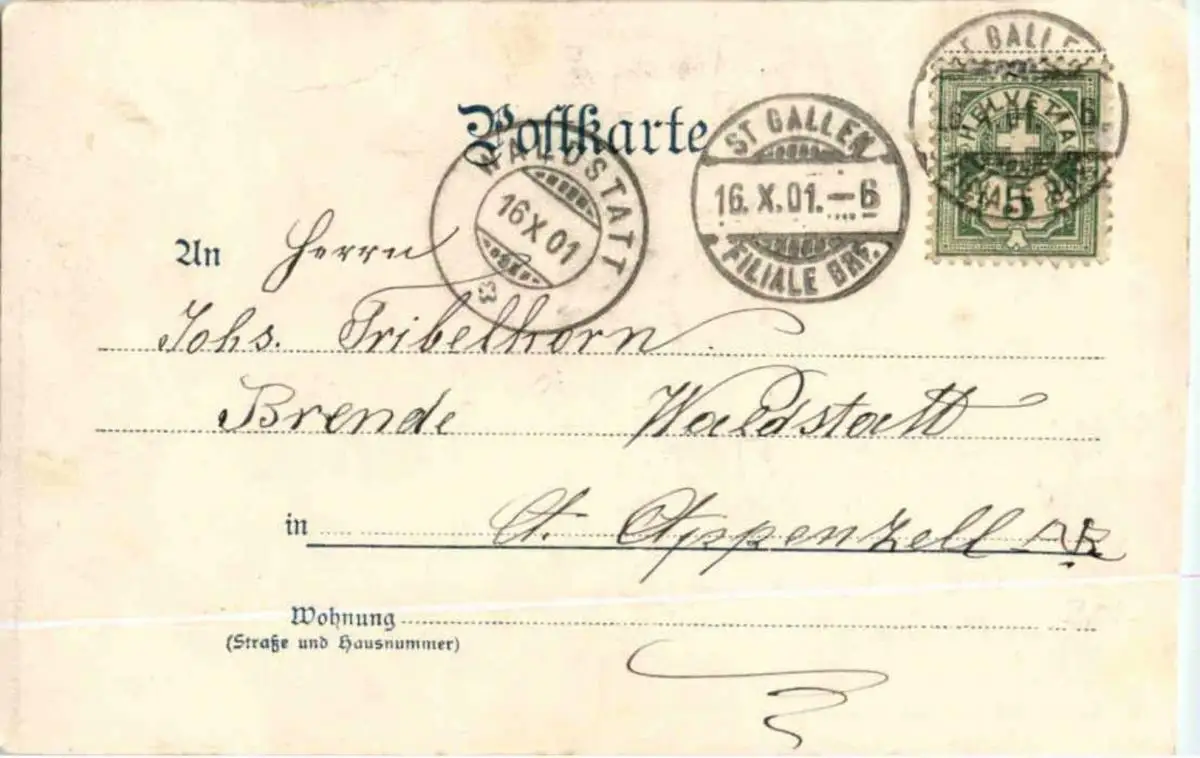 ST GALLEN
HELVETIA
5
Postkarte
ST GALLEN
16.X.01.-6
FILIALE BRF.
WALDSTATT
16 X 01
8
An Herrn
Johs. Tribelhorn.
Brende Waldstatt
in Ct. Appenzell AR
Wohnung
(Straße und Hausnummer)